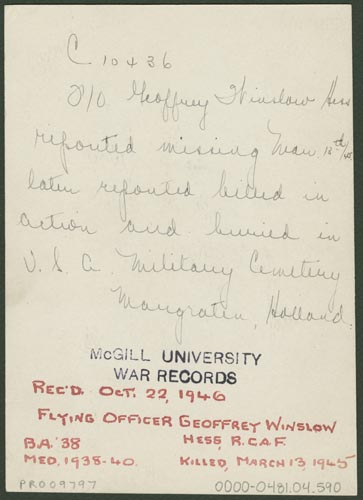 C 10436
F/O. Geoffrey Winslow Hess
reported missing Mar. 13th/45
later reported killed in
action and buried in
U.S.A. Military Cemetery
Margraten, Holland.
McGILL UNIVERSITY
WAR RECORDS
REC'D. OCT. 22, 1946
FLYING OFFICER GEOFFREY WINSLOW
HESS, R.C.A.F.
B.A. '38
MED, 1938-40.
KILLED, MARCH 13, 1945
PR009797
0000-0481.04.590